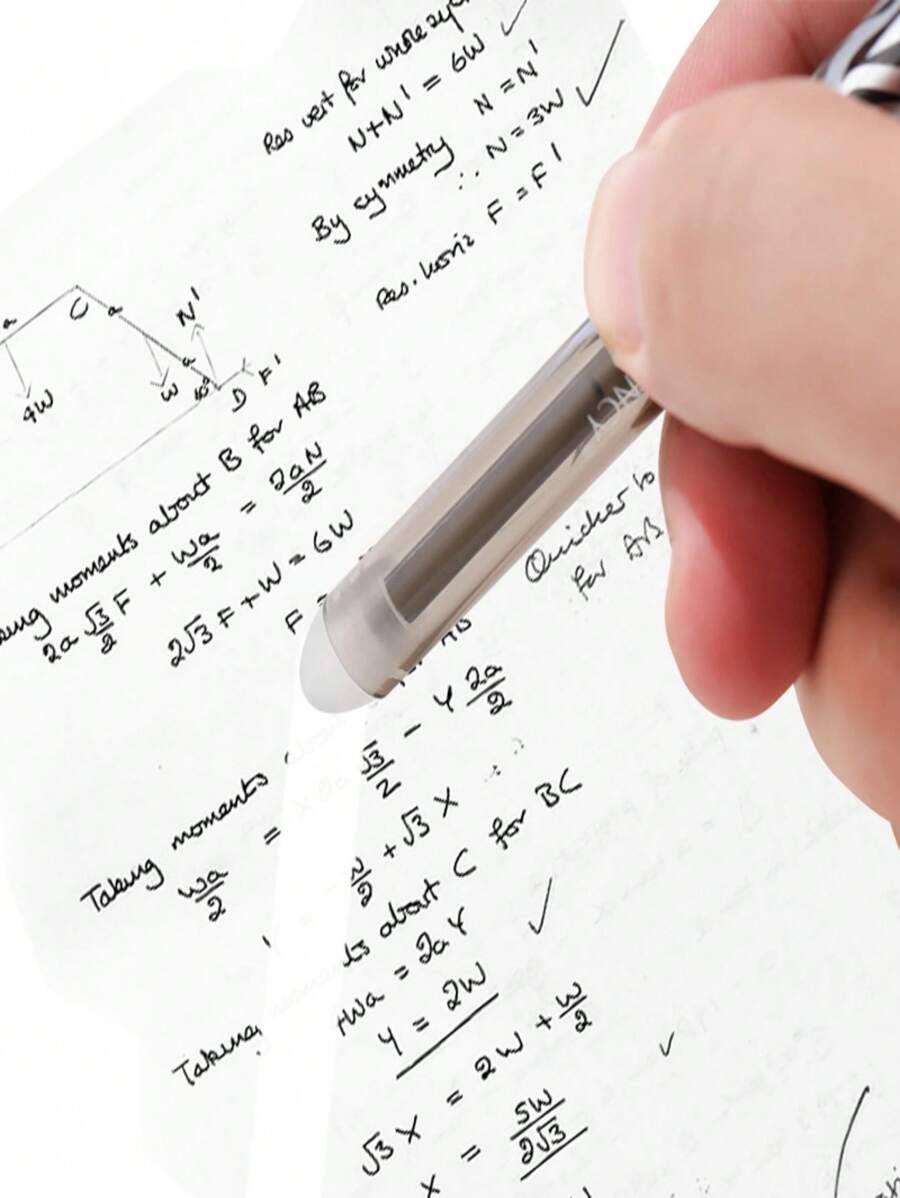 Res vert for whole
N+N' = 6W
By symmetry N = N'
∴ N = 3W
Res. horiz F = F'
a
C
a
N'
4W
W
a
60°
D
F'
moments about B for AB
2a √3/2 F + Wa/2 = 2aN/2
2√3 F + W = 6W
F =
NCY
Quicker to
for AB
AB
Taking moments
Wa/2 = √3/2 - Y 2a/2
/2 + √3 X
Taking about C for BC
Wa = 2aY
Y = 2W
√3 X = 2W + W/2
X = 5W/2√3